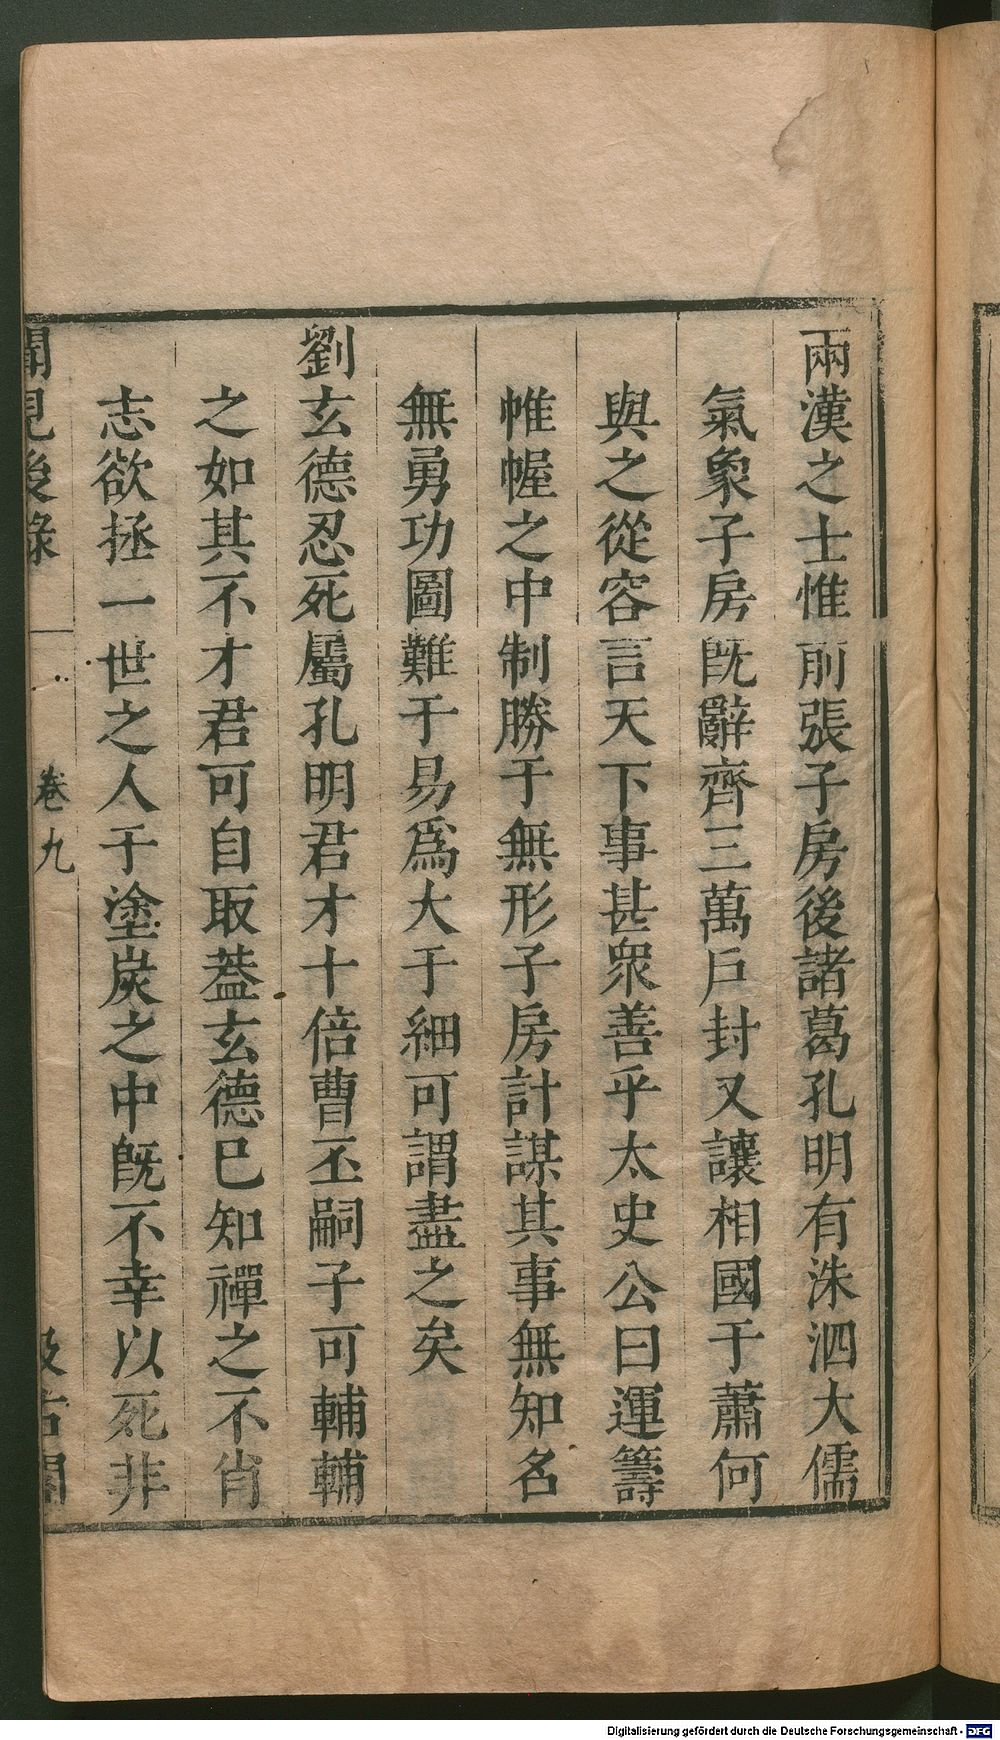 兩漢之士惟前張子房後諸葛孔明有洙泗大儒
氣象子房旣辭齊三萬戶封又讓相國于蕭何
與之從容言天下事甚衆善乎太史公曰運籌
帷幄之中制勝于無形子房計謀其事無知名
無勇功圖難于易爲大于細可謂盡之矣
劉玄德忍死屬孔明君才十倍曹丕嗣子可輔輔
之如其不才君可自取葢玄德巳知禪之不肖
志欲拯一世之人于塗炭之中旣不幸以死非
聞見後錄
卷九
汲古閣
Digitalisierung gefördert durch die Deutsche Forschungsgemeinschaft - DFG